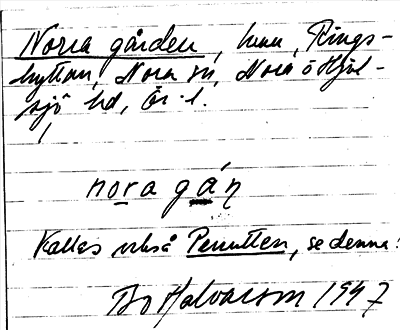 Norra gården, hmn, Rings-
hyttan, Nora sn, Nora o Hjul-
sjö hd, Ör. l.
nora gáɳ
Kallas också Perutten, se denna!
Bo Halvarson 1947